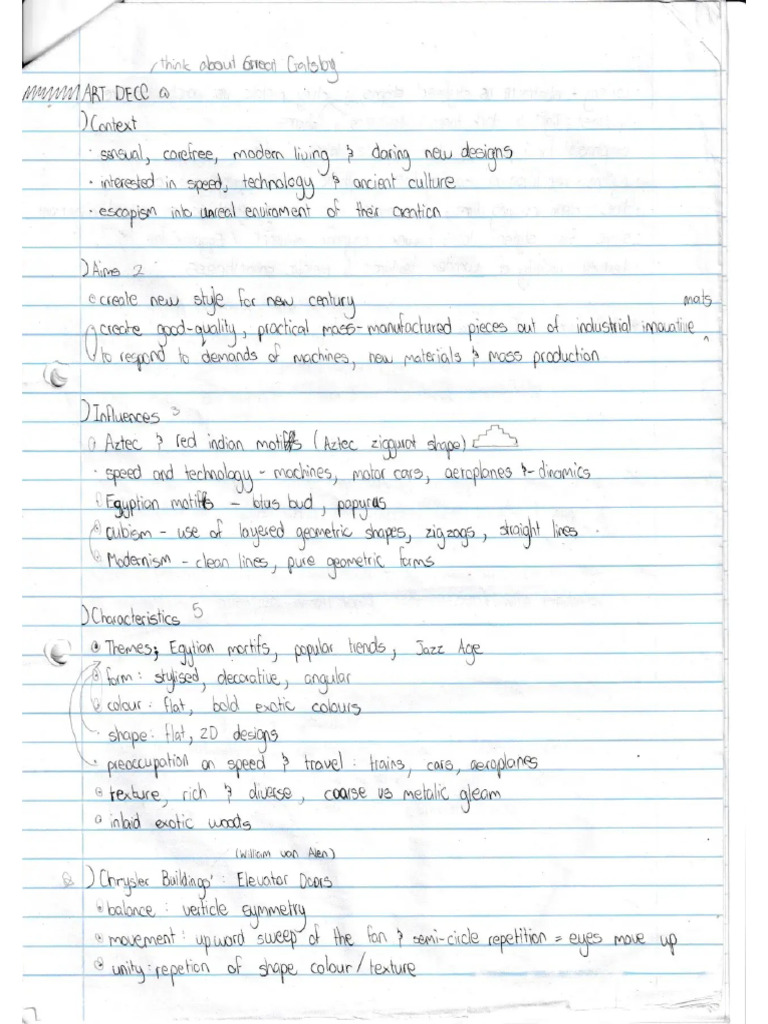 think about Great Gatsby
ART DECO
Context
· sensual, carefree, modern living & daring new designs
· interested in speed, technology & ancient culture
· escapism into unreal enviroment of their creation
Aims 2
create new style for new century
mats
create good-quality, practical mass-manufactured pieces out of industrial innovative ^
to respond to demands of machines, new materials & mass production
Influences 3
Aztec & red indian motifs (Aztec ziggurat shape)
· speed and technology - machines, motor cars, aeroplanes & - dinamics
Egyptian motifs - lotus bud, papyrus
cubism - use of layered geometric shapes, zigzags, straight lines
Modernism - clean lines, pure geometric forms
Characteristics 5
Themes; Egytian mortifs, popular trends, Jazz Age
form: stylised, decorative, angular
colour: flat, bold exotic colours
· shape: flat, 2D designs
· preoccupation on speed & travel: trains, cars, aeroplanes
texture, rich & diverse, coarse vs metalic gleam
inlaid exotic woods
(William van Alen)
Chrysler Buildings': Elevator Doors
balance: verticle symmetry
movement: upward sweep of the fan & semi-circle repetition = eyes move up
unity: repetion of shape colour/texture